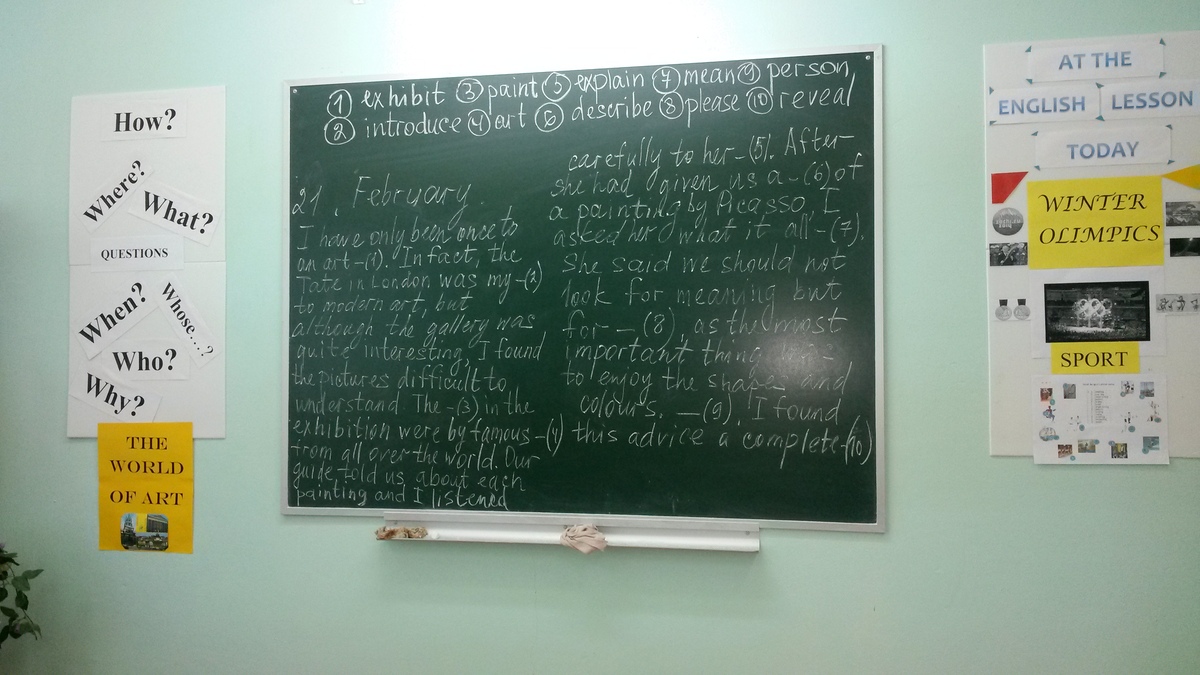 How?
Where?
What?
QUESTIONS
When?
Whose....?
Who?
Why?
THE
WORLD
OF ART
① exhibit ③ paint ⑤ explain ⑦ mean ⑨ person
② introduce ④ art ⑥ describe ⑧ please ⑩ reveal
21. February.
I have only been once to
an art -(1). In fact, the
Tate in London was my -(2)
to modern art, but
although the gallery was
quite interesting, I found
the pictures difficult to
understand. The -(3) in the
exhibition were by famous -(4)
from all over the world. Our
guide told us about each
painting and I listened
carefully to her -(5). After
she had given us a -(6) of
a painting by Picasso, I
asked her what it all -(7).
She said we should not
look for meaning but
for -(8), as the most
important thing
to enjoy the shapes and
colours. -(9), I found
this advice a complete -(10)
AT THE
ENGLISH LESSON
TODAY
WINTER
OLIMPICS
SPORT